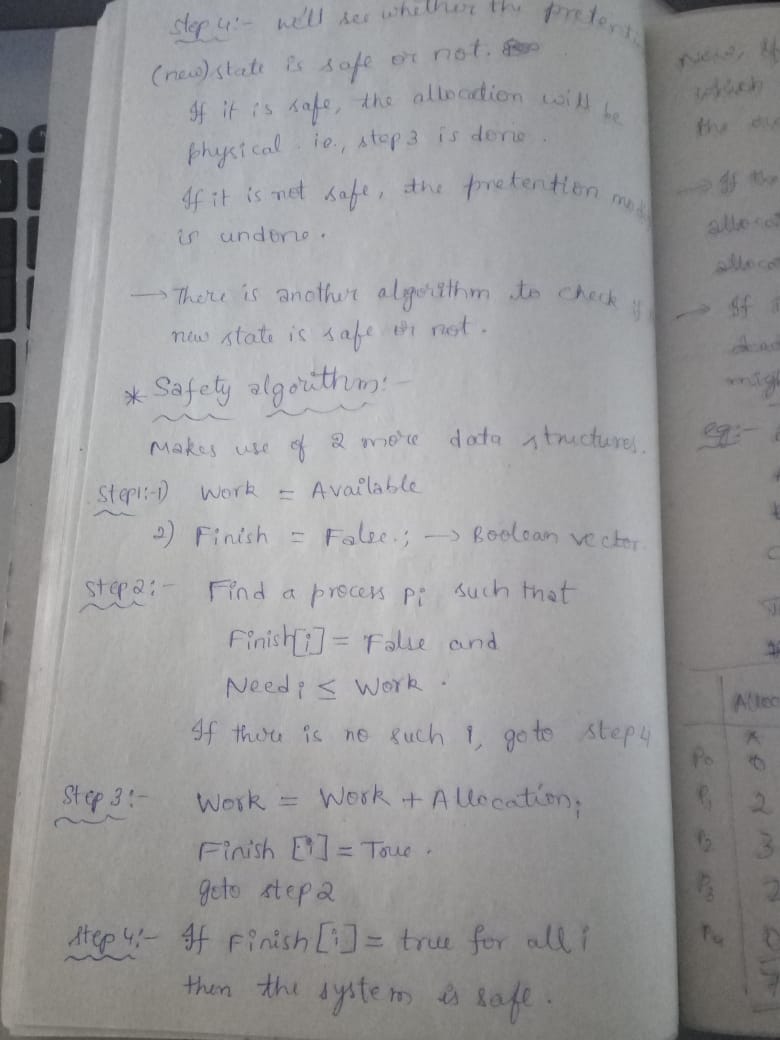 Step 4:- we'll see whether the pretenti
(new) state is safe or not.
If it is safe, the allocation will be
physical. ie., step 3 is done.
If it is not safe, the pretention
is undone.
→ There is another algorithm to check if
new state is safe or not.
* Safety algorithm:-
Makes use of 2 more data structures.
Step1:-1) Work = Available
2) Finish = False.; → Boolean vector.
Step2:- Find a process Pi such that
Finish[i] = False and
Needi ≤ Work.
If there is no such i, goto step 4
Step 3:- Work = Work + Allocation;
Finish [i] = True.
goto step 2
Step 4:- If Finish[i] = true for all i
then the system is safe.
Now,
which
the
→ If the
→ If
eg:-
P0
P1 2
P2 3
P3 2
P4